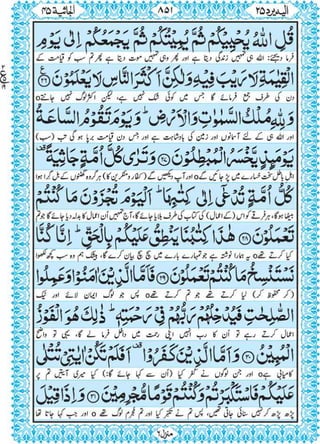 الجاثیة ۴۵ ۸۵۱ الیہ یرد ۲۵
قُلِ اللّٰهُ یُحْیِیْكُمْ ثُمَّ یُمِیْتُكُمْ ثُمَّ یَجْمَعُكُمْ اِلٰى یَوْمِ
فرما دیجئے: اللہ ہی تمہیں زندگی دیتا ہے اور پھر وہی تمہیں موت دیتا ہے پھر تم سب کو قیامت کے
الْقِیٰمَةِ لَا رَیْبَ فِیْهِ وَ لٰكِنَّ اَكْثَرَ النَّاسِ لَا یَعْلَمُوْنَ ﴿۲۶﴾
دن کی طرف جمع فرمائے گا جس میں کوئی شک نہیں ہے، لیکن اکثر لوگ نہیں جانتے
وَ لِلّٰهِ مُلْكُ السَّمٰوٰتِ وَ الْاَرْضِ ؕ وَ یَوْمَ تَقُوْمُ السَّاعَةُ
اور اللہ ہی کے لئے آسمانوں اور زمین کی بادشاہت ہے اور جس دن قیامت برپا ہو گی تب (سب)
یَوْمَىِٕذٍ یَّخْسَرُ الْمُبْطِلُوْنَ ﴿۲۷﴾ وَ تَرٰى كُلَّ اُمَّةٍ جَاثِیَةً ۫
اہلِ باطل سخت خسارے میں پڑ جائیں گے اور آپ دیکھیں گے
كُلُّ اُمَّةٍ تُدْعٰۤى اِلٰى كِتٰبِهَا ؕ اَلْیَوْمَ تُجْزَوْنَ مَا كُنْتُمْ
بیٹھا ہوگا، ہر فرقے کو اس (کے اعمال) کی کتاب کی طرف بلایا جائے گا، آج تمہیں اُن اعمال کا بدلہ دیا جائے گا جو تم
تَعْمَلُوْنَ ﴿۲۸﴾ هٰذَا كِتٰبُنَا یَنْطِقُ عَلَیْكُمْ بِالْحَقِّ ؕ اِنَّا كُنَّا
کیا کرتے تھے یہ ہمارا نوشتہ ہے جو تمہارے بارے میں سچ سچ بیان کرے گا، بیشک ہم وہ سب کچھ لکھوا
نَسْتَنْسِخُ مَا كُنْتُمْ تَعْمَلُوْنَ ﴿۲۹﴾ فَاَمَّا الَّذِیْنَ اٰمَنُوْا وَ عَمِلُوا
(کر محفوظ کر) لیا کرتے تھے جو تم کرتے تھے پس جو لوگ ایمان لائے اور نیک
الصّٰلِحٰتِ فَیُدْخِلُهُمْ رَبُّهُمْ فِیْ رَحْمَتِهٖ ؕ ذٰلِكَ هُوَ الْفَوْزُ
اعمال کرتے رہے تو اُن کا رب اُنہیں اپنی رحمت میں داخل فرما لے گا، یہی تو واضح
الْمُبِیْنُ ﴿۳۰﴾ وَ اَمَّا الَّذِیْنَ كَفَرُوْا ۫ اَفَلَمْ تَكُنْ اٰیٰتِیْ تُتْلٰى
کامیابی ہے اور جن لوگوں نے کفر کیا (اُن سے کہا جائے گا:) کیا میری آیتیں تم پر
عَلَیْكُمْ فَاسْتَكْبَرْتُمْ وَ كُنْتُمْ قَوْمًا مُّجْرِمِیْنَ ﴿۳۱﴾ وَ اِذَا قِیْلَ
پڑھ پڑھ کر نہیں سنائی جاتی تھیں، پس تم نے تکبّر کیا اور تم مجرم لوگ تھے اور جب کہا جاتا تھا
منزل ۶